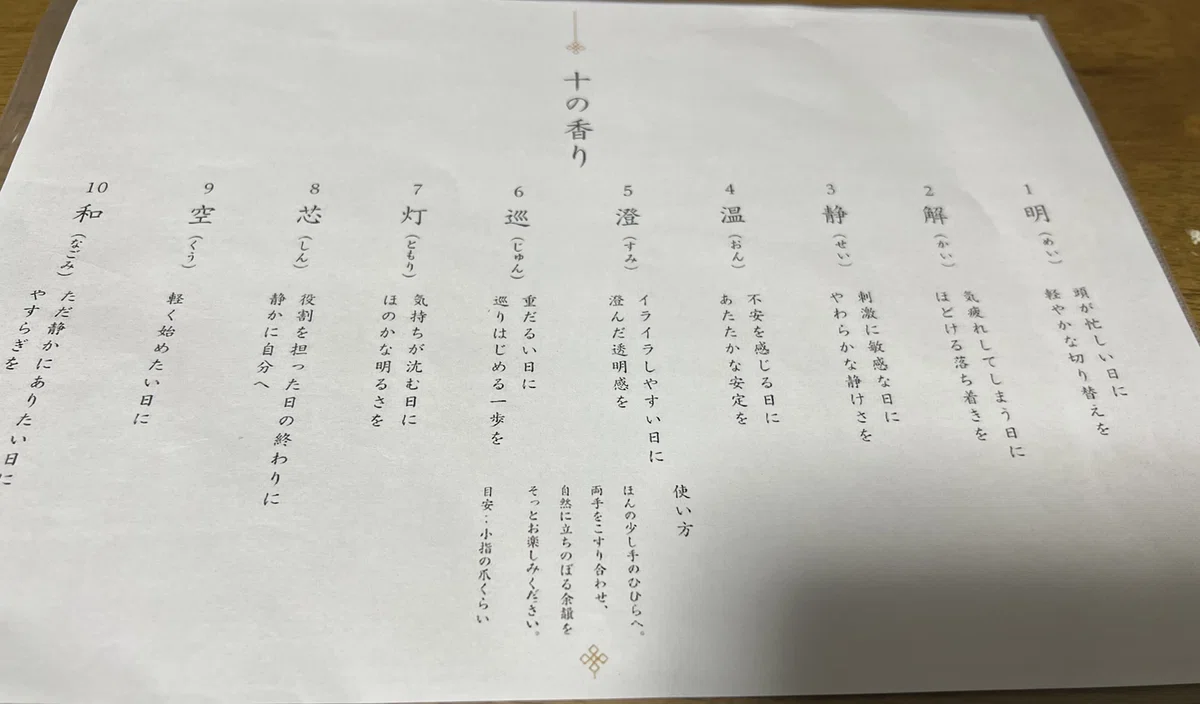 十の香り
1 明(めい)
頭が忙しい日に
軽やかな切り替えを
2 解(かい)
気疲れしてしまう日に
ほどける落ち着きを
3 静(せい)
刺激に敏感な日に
やわらかな静けさを
4 温(おん)
不安を感じる日に
あたたかな安定を
5 澄(すみ)
イライラしやすい日に
澄んだ透明感を
6 巡(じゅん)
重だるい日に
巡りはじめる一歩を
7 灯(ともり)
気持ちが沈む日に
ほのかな明るさを
8 芯(しん)
役割を担った日の終わりに
静かに自分へ
9 空(くう)
軽く始めたい日に
10 和(なごみ)
ただ静かにありたい日に
やすらぎを
使い方
ほんの少し手のひひらへ。
両手をこすり合わせ、
自然に立ちのぼる余韻を
そっとお楽しみください。
目安:小指の爪くらい